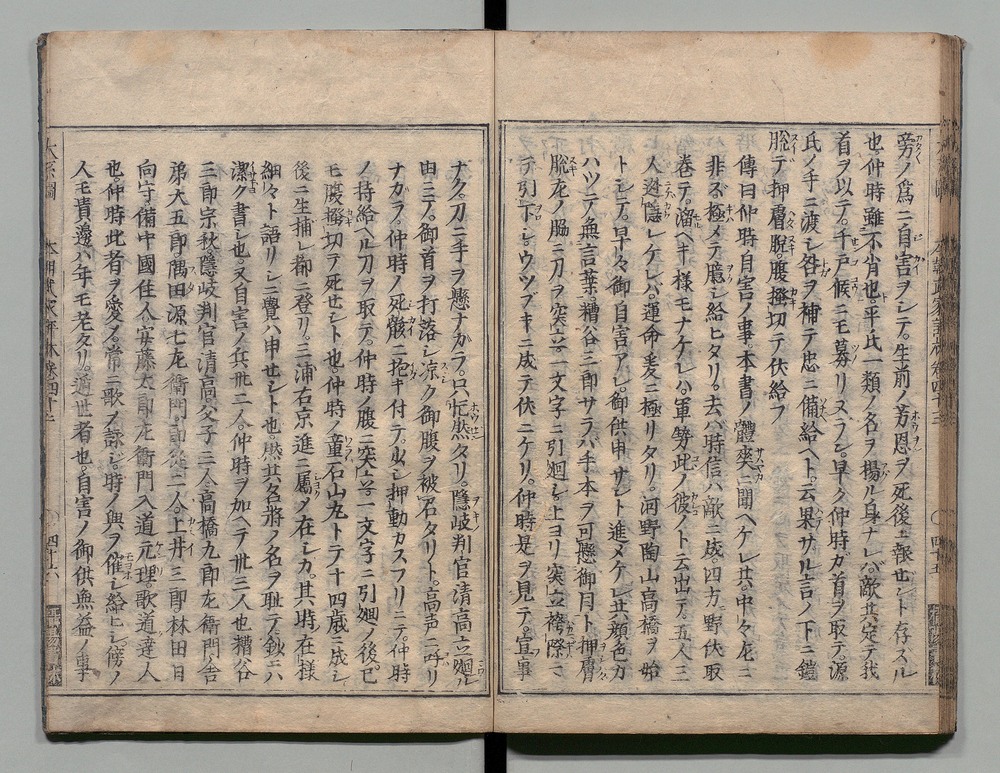 旁ノ為ニ自害ヲシテ。生前ノ芳恩ヲ死後ニ報セント存スル
也仲時雖不肖也平氏一類ノ名ヲ揚ル身ナレハ敵共定テ我
首ヲ以テ。千戸候ニモ募リヌラン。早ク仲時カ首ヲ取テ。源
氏ノ手ニ渡シ咎ヲ補テ忠ニ備給ヘト。云果サル言ノ下ニ鎧
脱テ押膚脱。腹掻切テ伏給フ
傳曰仲時自害ノ事。本書ノ體爽ニ聞ヘケレ共。中々左ニ
非ズ極メテ臆シ給ヒタリ。去ハ時信ハ敵ニ成。四方ノ野伏取
巻テ。溜ヘキ様モナケレハ。軍勢此ノ彼ノト云出テ。五人三
人逃隠レケレバ。運命爰ニ極リタリ。河野陶山高橋ヲ始
トシテ。早々御自害アレ。御供申サント進メケレ共顔色カ
ハツテ無言葉糟谷三郎サラバ手本ヲ可懸御目ト押膚
脱左ノ脇ニ刀ヲ突立。一文字ニ引廻シ上ヨリ突立袴際ニ
テ引下シ。ウツブキニ成テ伏ニケリ。仲時是ヲ見テ。宣事
ナク。刀ニ手ヲ懸ナカラ。只忙然タリ。隠岐判官清高立廻ル
由ニテ。御首ヲ打落シ涼ク御腹ヲ被召タリト。高声ニ呼リ
ナガラ。仲時ノ死骸ニ抱キ付テ。少シ押動カスフリニテ。仲時
ノ持給ヘル刀ヲ取テ。仲時ノ腹ニ突立。一文字ニ引廻ノ後。已
モ腹掻切テ死セント也。仲時ノ童石山丸トテ十四歳ニ成シ
後ニ生捕レ都ニ登リ。三浦右京進ニ属ノ在シカ。其時在様
細々ト語リシニ覺ハ申セシト也。然共名將ノ名ヲ耻テ鈔ニハ
潔ク書シ也。又自害ノ兵卅二人。仲時ヲ加ヘテ卅三人也糟谷
三郎宗秋隠岐判官清高父子三人高橋九郎左衛門舎
弟大五郎。隅田源七左衛門。郎従二人。上井三郎林田日
向守備中國住人安藤太郎左衛門入道元理。歌道達人
也。仲時此者ヲ愛ノ。常ニ歌ヲ詠ジ。時ノ興ヲ催シ給ヒシ傍ノ
人モ貴邊ハ年モ老タリ。遁世者也。自害ノ御供無益ノ事
四十五
四十六